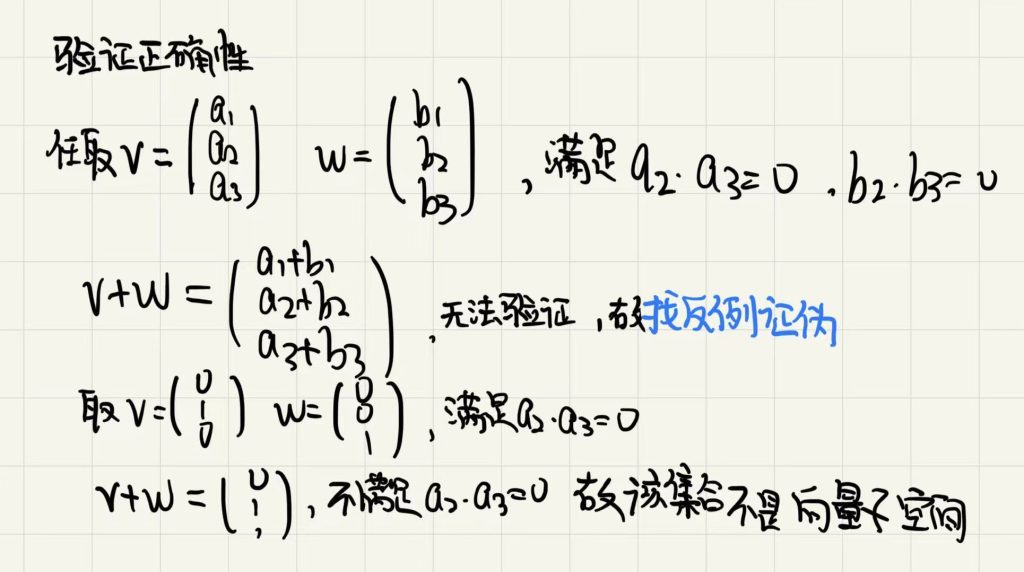 验证正确性
任取 v = (a₁ a₂ a₃) w = (b₁ b₂ b₃) , 满足 a₂·a₃=0 , b₂·b₃=0
v+w = (a₁+b₁ a₂+b₂ a₃+b₃) , 无法验证 , 故找反例证伪
取 v=(0 1 0) w=(0 0 1) , 满足a₂·a₃=0
v+w = (0 1 1) , 不满足 a₂·a₃=0 故该集合不是向量子空间